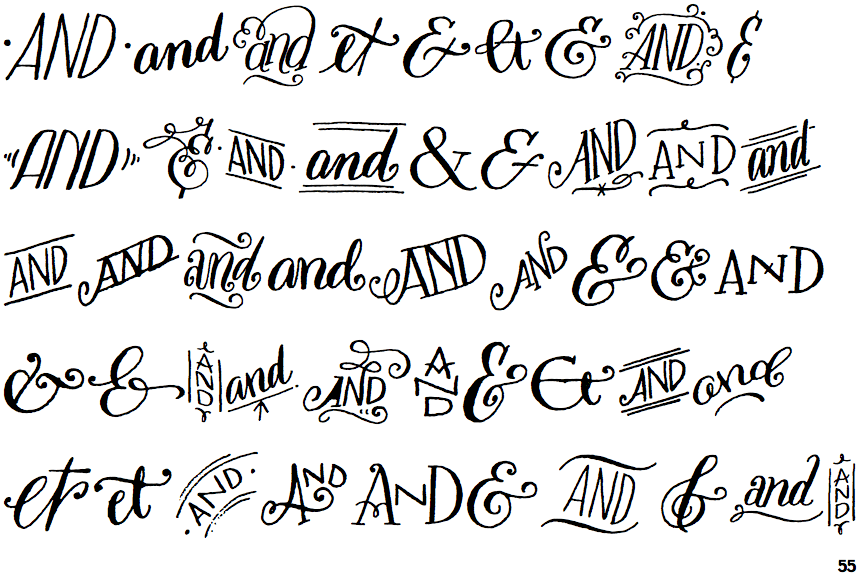 ·AND ·and and et & & & AND. &
"AND" & ·AND· and & & AND AND and
AND AND and and AND AND & & AND
& & AND and. AND AND & Et AND and
et et ·AND· AND AND & AND & and AND
55